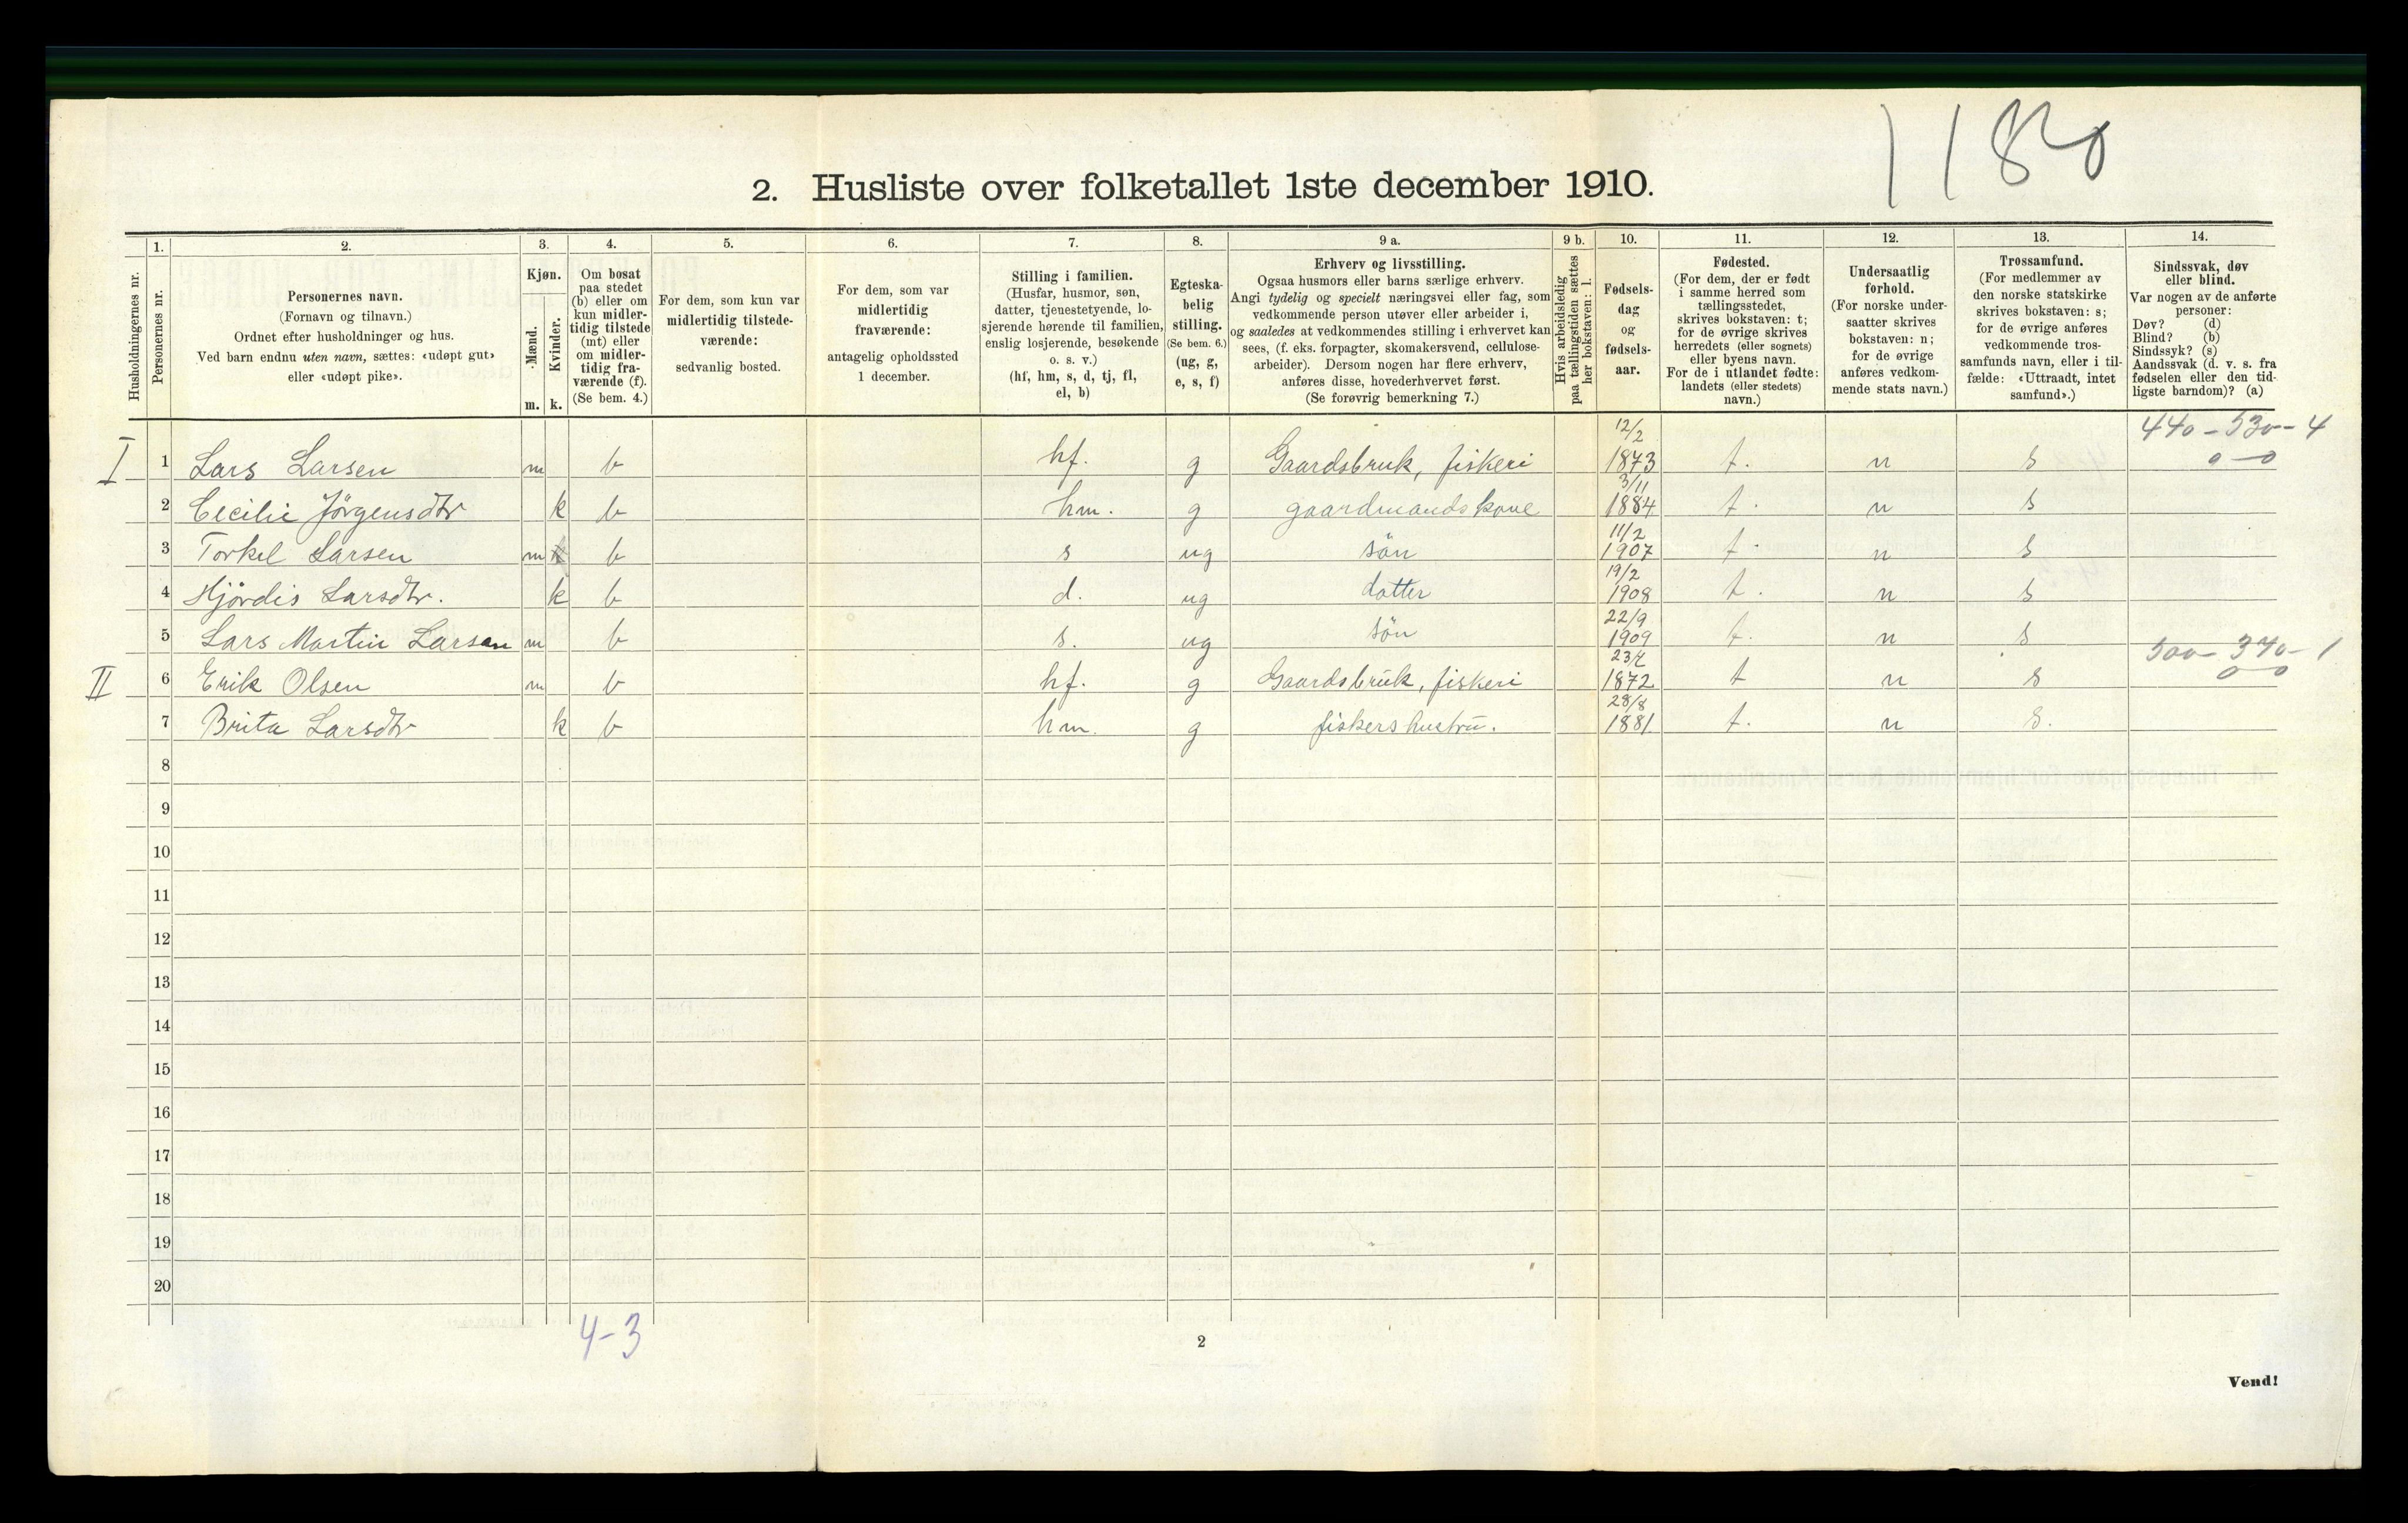 1180
2. Husliste over folketallet 1ste december 1910.
1. 2. 3. 4. 5. 6. 7. 8. 9 a. 9 b. 10. 11. 12. 13. 14.
Husholdningernes nr.
Personernes nr.
Personernes navn.
(Fornavn og tilnavn.)
Ordnet efter husholdninger og hus.
Ved barn endnu uten navn, sættes: «udøpt gut»
eller «udøpt pike».
Kjøn.
Mænd.
Kvinder.
m. k.
Om bosat
paa stedet
(b) eller om
kun midler-
tidig tilstede
(mt) eller
om midler-
tidig fra-
værende (f).
(Se bem. 4.)
For dem, som kun var
midlertidig tilstede-
værende:
sedvanlig bosted.
For dem, som var
midlertidig
fraværende:
antagelig opholdssted
1 december.
Stilling i familien.
(Husfar, husmor, søn,
datter, tjenestetyende, lo-
sjerende hørende til familien,
enslig losjerende, besøkende
o. s. v.)
(hf, hm, s, d, tj, fl,
el, b)
Egteska-
belig
stilling.
(Se bem. 6.)
(ug, g,
e, s, f)
Erhverv og livsstilling.
Ogsaa husmors eller barns særlige erhverv.
Angi tydelig og specielt næringsvei eller fag, som
vedkommende person utøver eller arbeider i,
og saaledes at vedkommendes stilling i erhvervet kan
sees, (f. eks. forpagter, skomakersvend, cellulose-
arbeider). Dersom nogen har flere erhverv,
anføres disse, hovederhvervet først.
(Se forøvrig bemerkning 7.)
Hvis arbeidsledig
paa tællingstiden sættes
her bokstaven: l.
Fødsels-
dag
og
fødsels-
aar.
Fødested.
(For dem, der er født
i samme herred som
tællingsstedet,
skrives bokstaven: t;
for de øvrige skrives
herredets (eller sognets)
eller byens navn.
For de i utlandet fødte:
landets (eller stedets)
navn.)
Undersaatlig
forhold.
(For norske under-
saatter skrives
bokstaven: n;
for de øvrige
anføres vedkom-
mende stats navn.)
Trossamfund.
(For medlemmer av
den norske statskirke
skrives bokstaven: s;
for de øvrige anføres
vedkommende tros-
samfunds navn, eller i til-
fælde: «Uttraadt, intet
samfund».)
Sindssvak, døv
eller blind.
Var nogen av de anførte
personer:
Døv? (d)
Blind? (b)
Sindssyk? (s)
Aandssvak (d. v. s. fra
fødselen eller den tid-
ligste barndom)? (a)
12/2 440-530-4
I 1 Lars Larsen m b hf. g Gaardsbruk, fiskeri 1873 t. n s 0-0
3/11
2 Cecilie Jörgensdtr k b hm. g gaardmandskone 1884 t. n s
11/2
3 Torkel Larsen m b s ug sön 1907 t. n s
19/2
4 Hjördis Larsdtr. k b d. ug datter 1908 t. n s
22/9
5 Lars Martin Larsen m b s. ug sön 1909 t. n s
500-370-1
II 6 Erik Olsen m b hf. g Gaardsbrŭk, fiskeri 1872 t n s 0-0
28/8
7 Brita Larsdtr k b hm. g fiskershustrŭ. 1881 t. n s.
8
9
10
11
12
13
14
15
16
17
18
19
20
4-3
2
Vend!